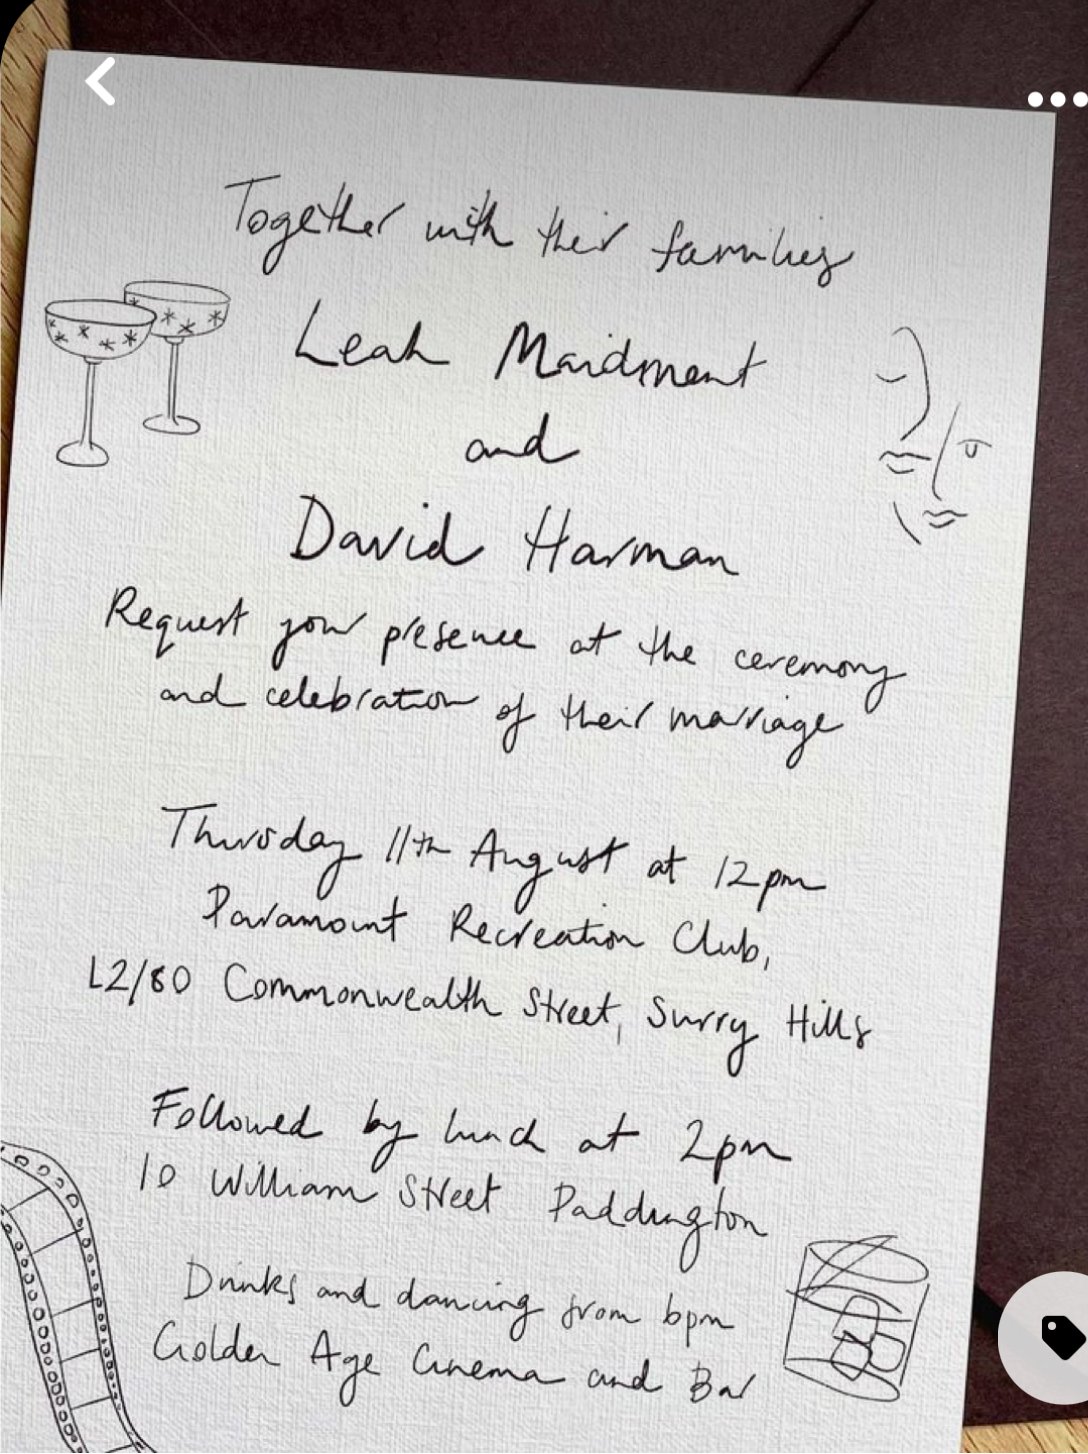 Together with their families
Leah Maidment
and
David Harman
Request your presence at the ceremony
and celebration of their marriage
Thursday 11th August at 12pm
Paramount Recreation Club,
L2/80 Commonwealth Street, Surry Hills
Followed by lunch at 2pm
10 William Street Paddington
Drinks and dancing from 6pm
Golden Age Cinema and Bar